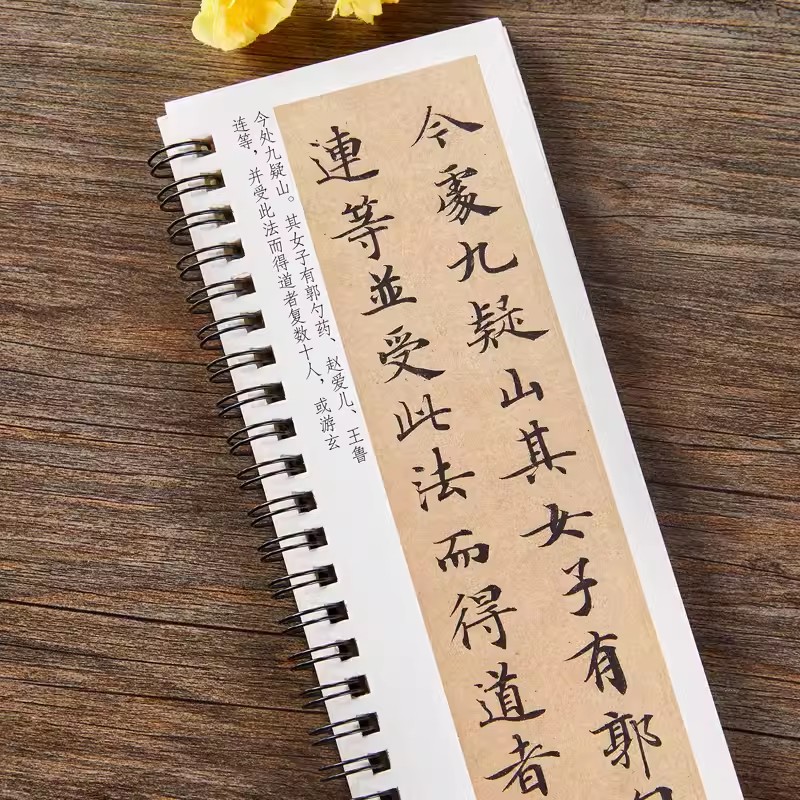 今處九疑山其女子有郭
連等並受此法而得道者
今处九疑山。其女子有郭勺药、赵爱儿、王鲁
连等，并受此法而得道者复数十人，或游玄